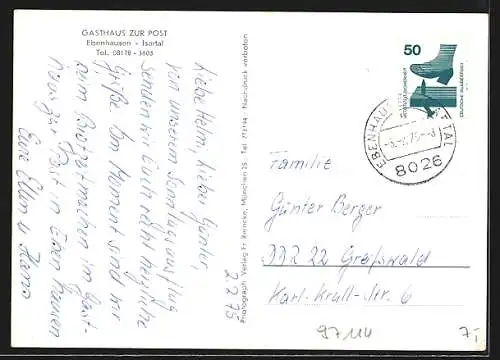 GASTHAUS ZUR POST
Ebenhausen - Isartal
Tel. 08178 - 3603
Liebe Helm, lieber Günter,
von unserem Sonntagsausflug
senden wir Euch recht herzliche
Grüße. Im Moment sind wir
beim Brotzeitmachen im Gast-
haus zur Post in Ebenhausen
Eure Ellen u Hans
2.2.75
Phonograph Verlag Fr. Reinicke, München 25 Tel 773194 Nachdruck verboten
50
DEUTSCHE BUNDESPOST
EBENHAUSEN ISARTAL
75-8
8026
Familie
Günter Berger
DDR 22 Greifswald
Karl-Krull-Str. 6
97114
7,-